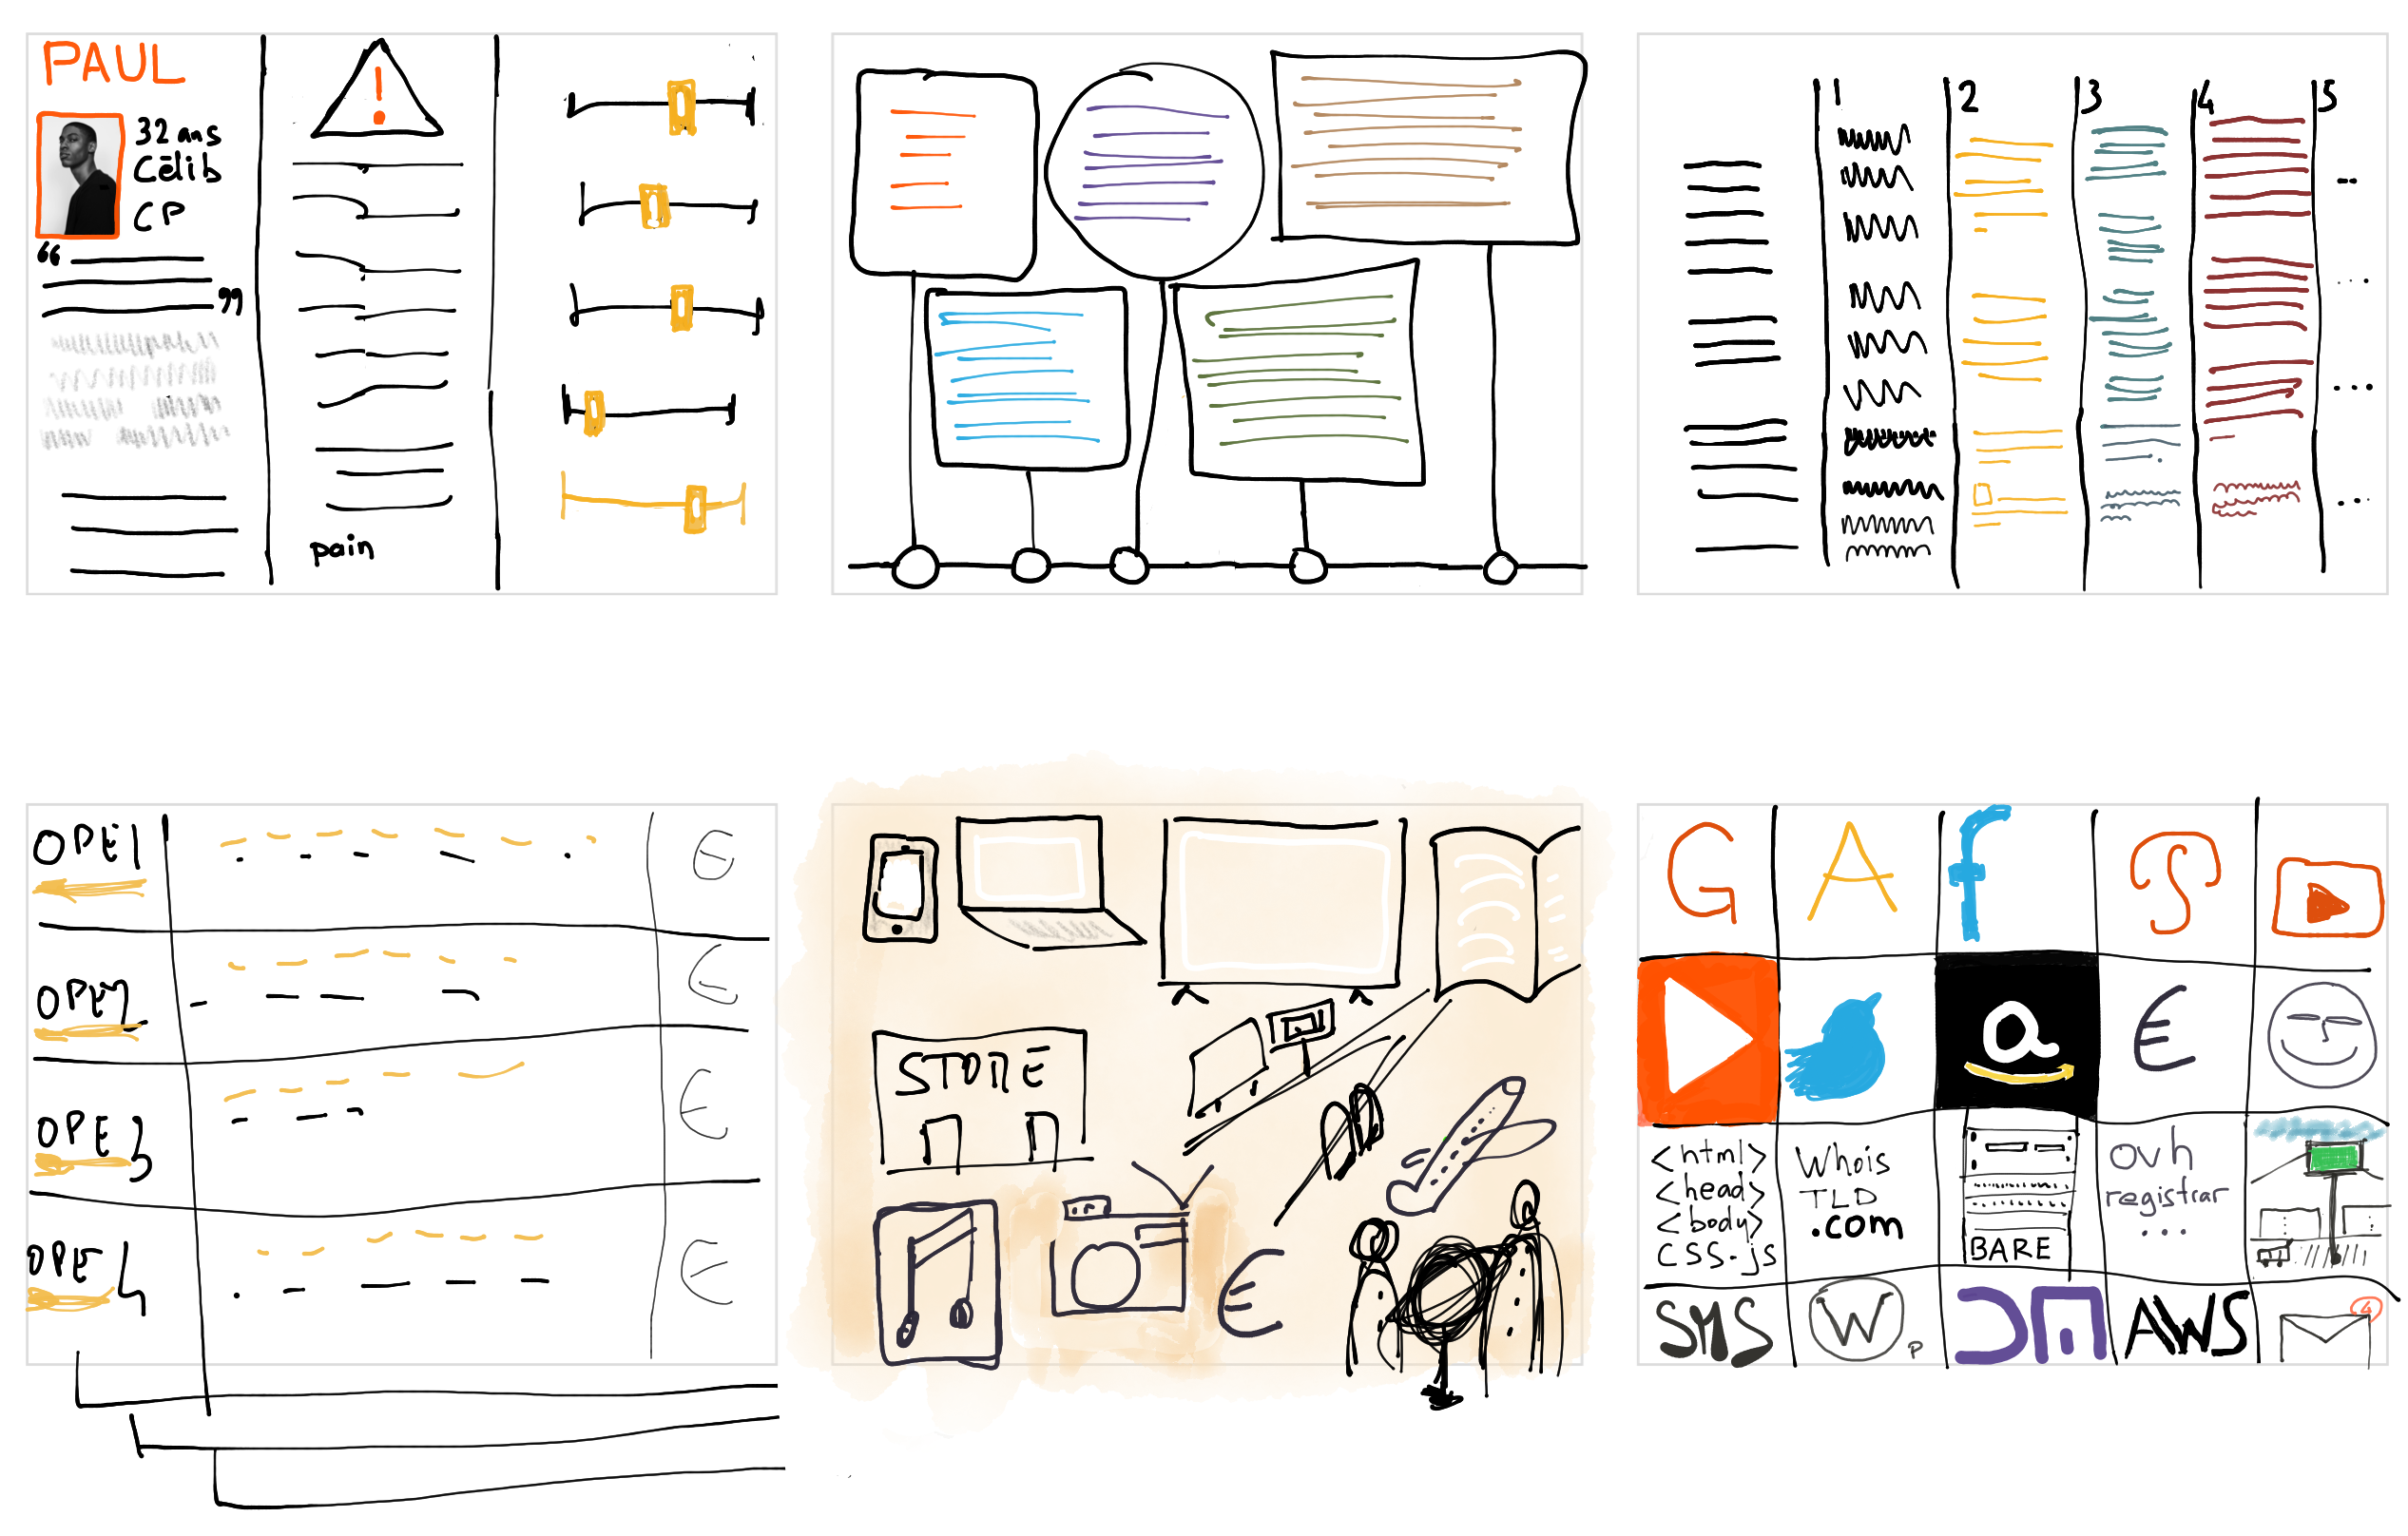 PAUL
32 ans
Célib
CP
“
”
!
pain
1 2 3 4 5
OPE1 €
OPE2 €
OPE3 €
OPE4 €
STORE
€
G A f P
a €
<html>
<head>
<body>
CSS.js
Whois
TLD
.com
BARE
ovh
registrar
...
SMS
W
P
AWS
4